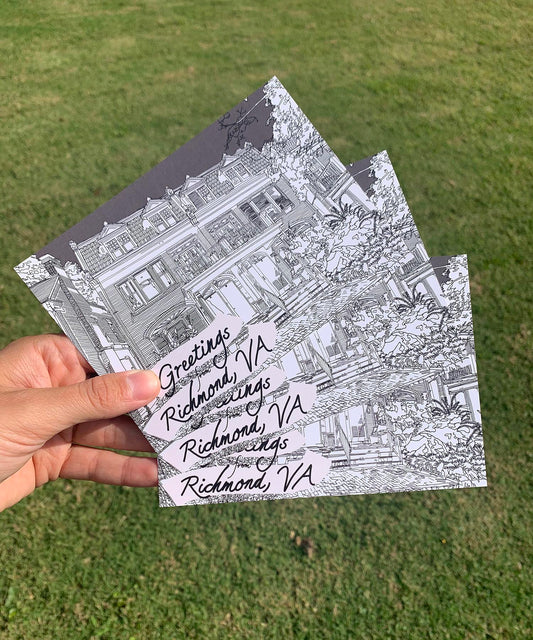 Greetings
Richmond, VA
Richmond, VA
Richmond, VA